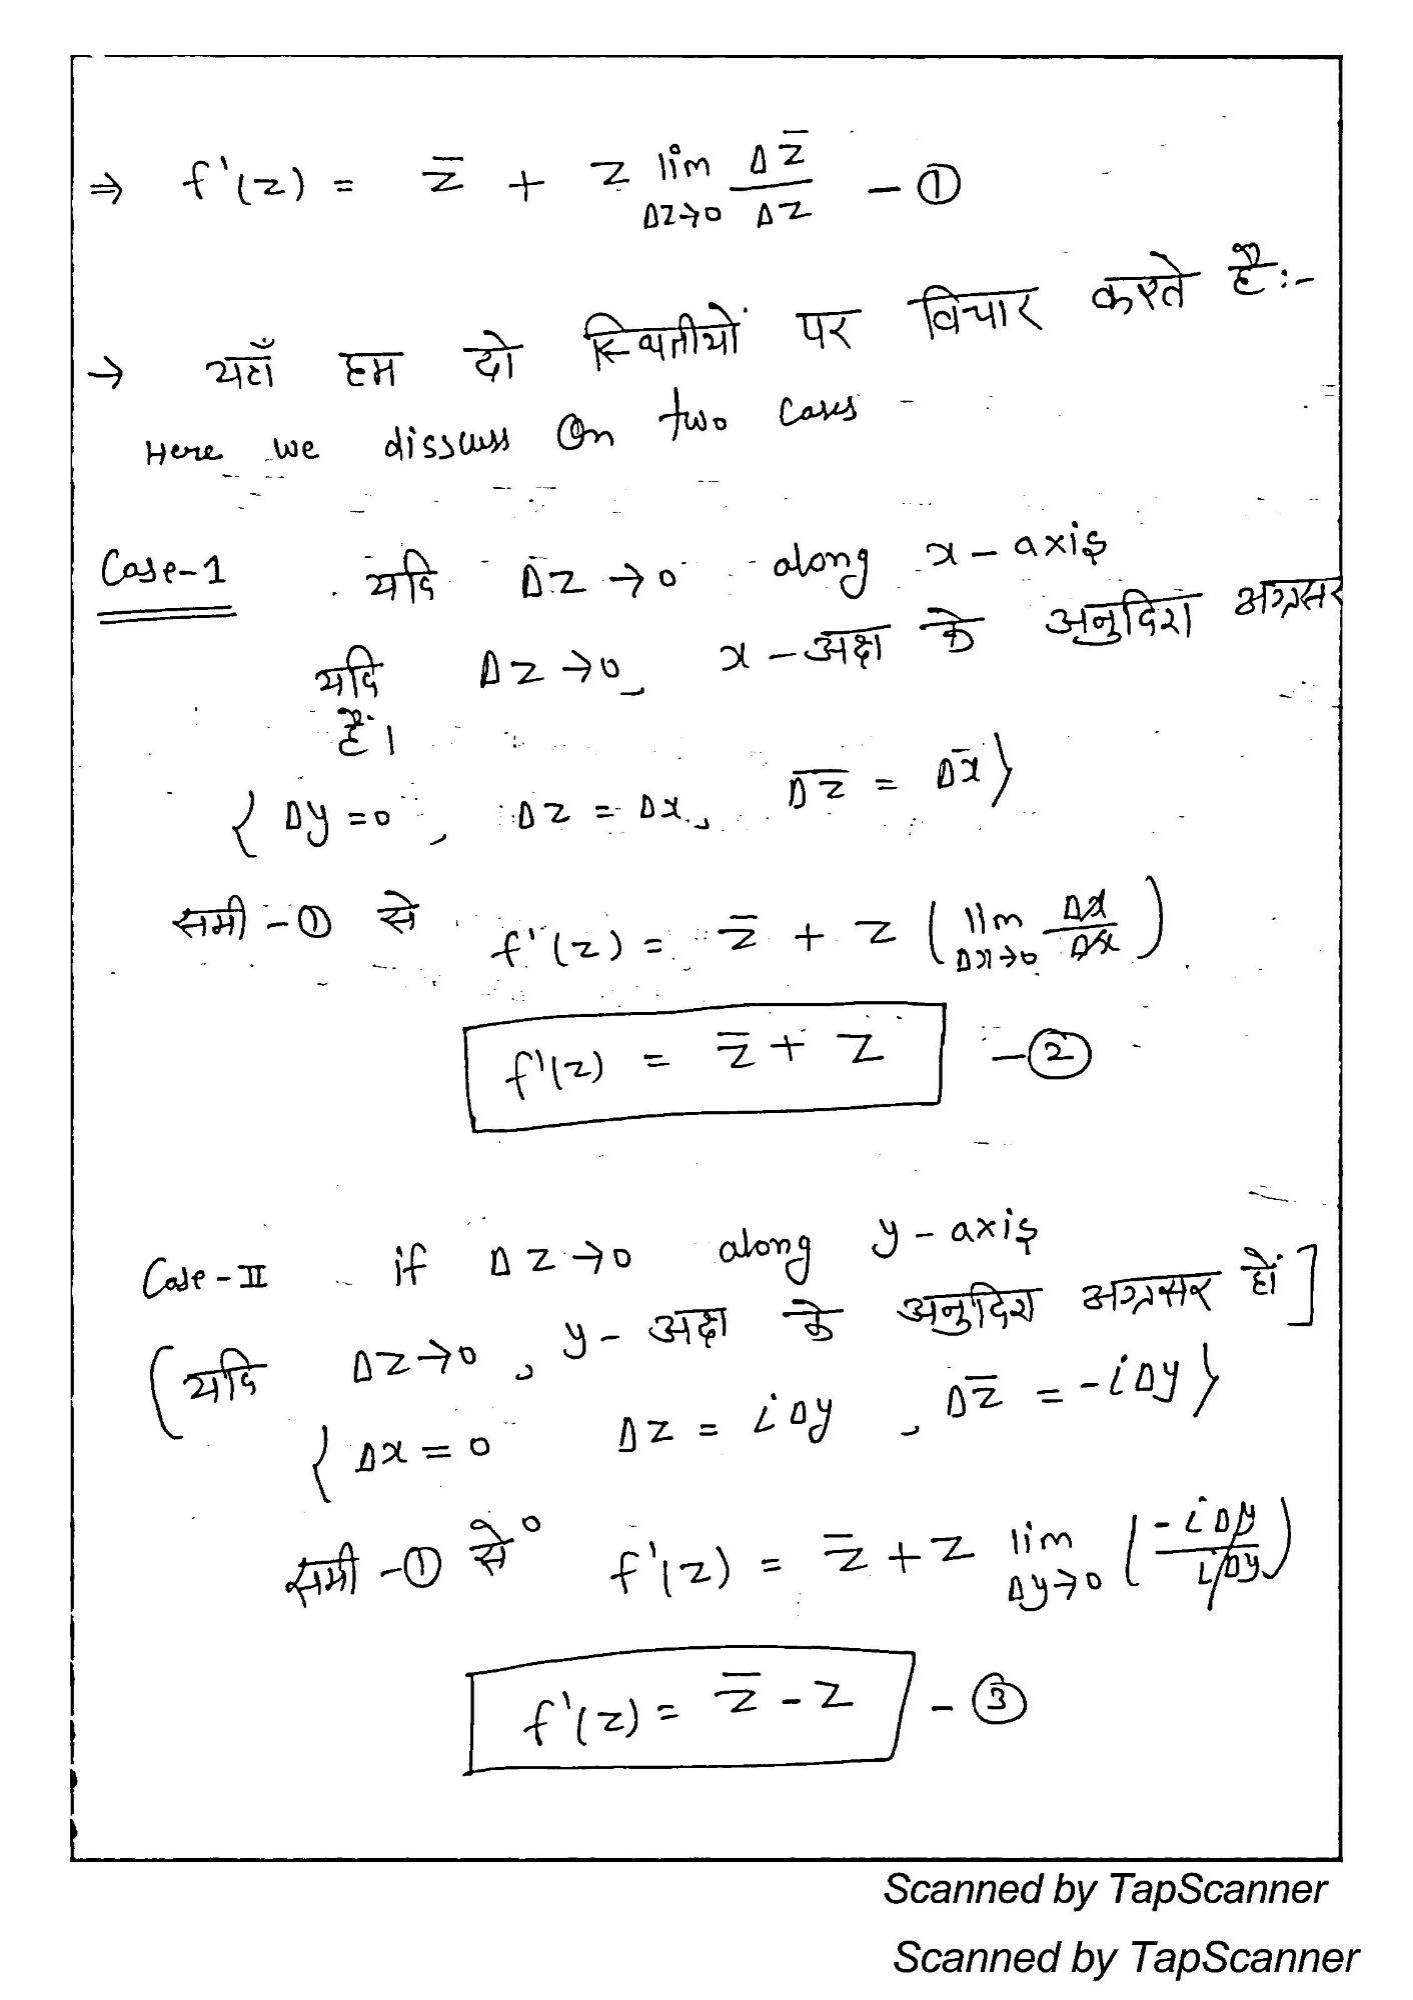 ⇒ f'(z) = z̄ + z lim Δz→0 Δz̄/Δz - ①
→ यहाँ हम दो स्थितीयों पर विचार करते हैं:-
Here we disscuss On two cases -
Case-1 यदि Δz → 0 along x-axis
यदि Δz → 0, x-अक्ष के अनुदिश अग्रसर
हैं।
{ Δy = 0, Δz = Δx, Δz̄ = Δx̄ }
समी - ① से f'(z) = z̄ + z ( lim Δx→0 Δx/Δx )
f'(z) = z̄ + z - ②
Case-II if Δz → 0 along y-axis
( यदि Δz → 0, y-अक्ष के अनुदिश अग्रसर हों ]
{ Δx = 0 Δz = iΔy, Δz̄ = -iΔy }
समी - ① से० f'(z) = z̄ + z lim Δy→0 ( -iΔy/iΔy )
f'(z) = z̄ - z - ③
Scanned by TapScanner
Scanned by TapScanner